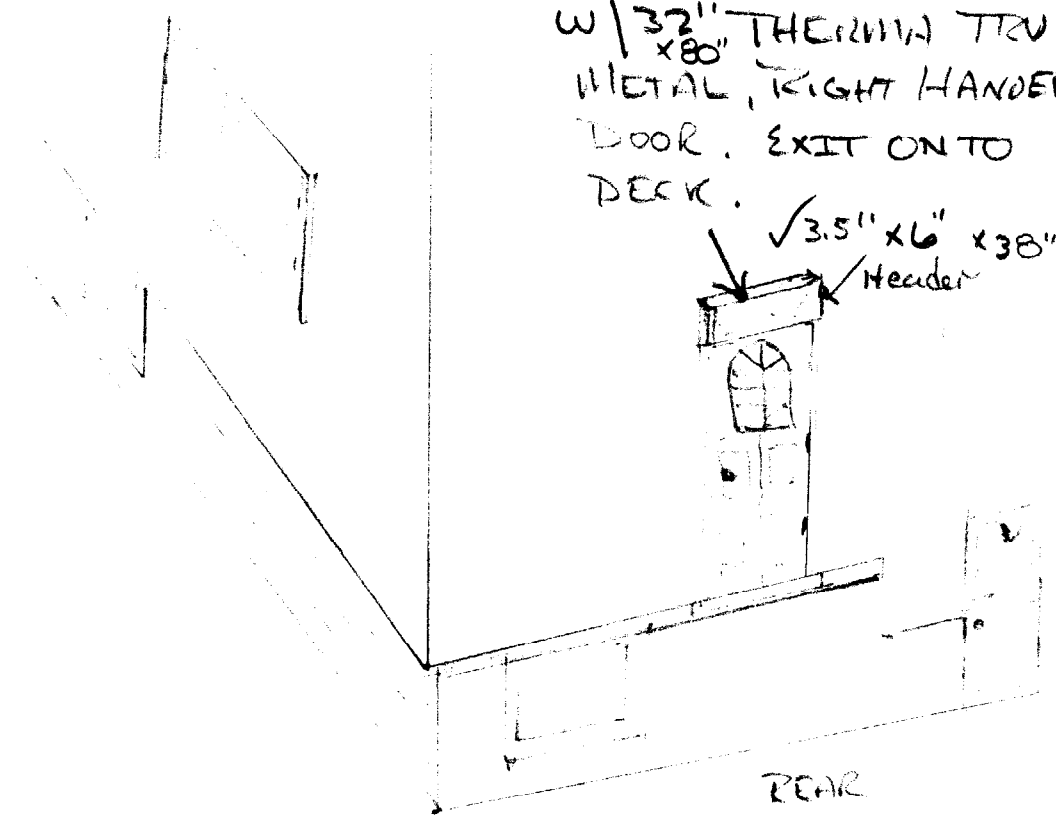 W/ 32" x80" THERMA TRU
METAL, RIGHT HANDED
DOOR. EXIT ONTO
DECK.
√3.5" x6" x38"
Header
REAR